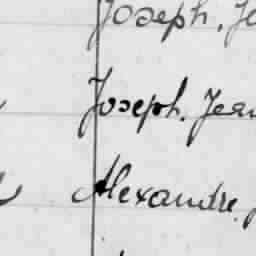 Joseph. Je
Joseph. Jean
Alexandre.